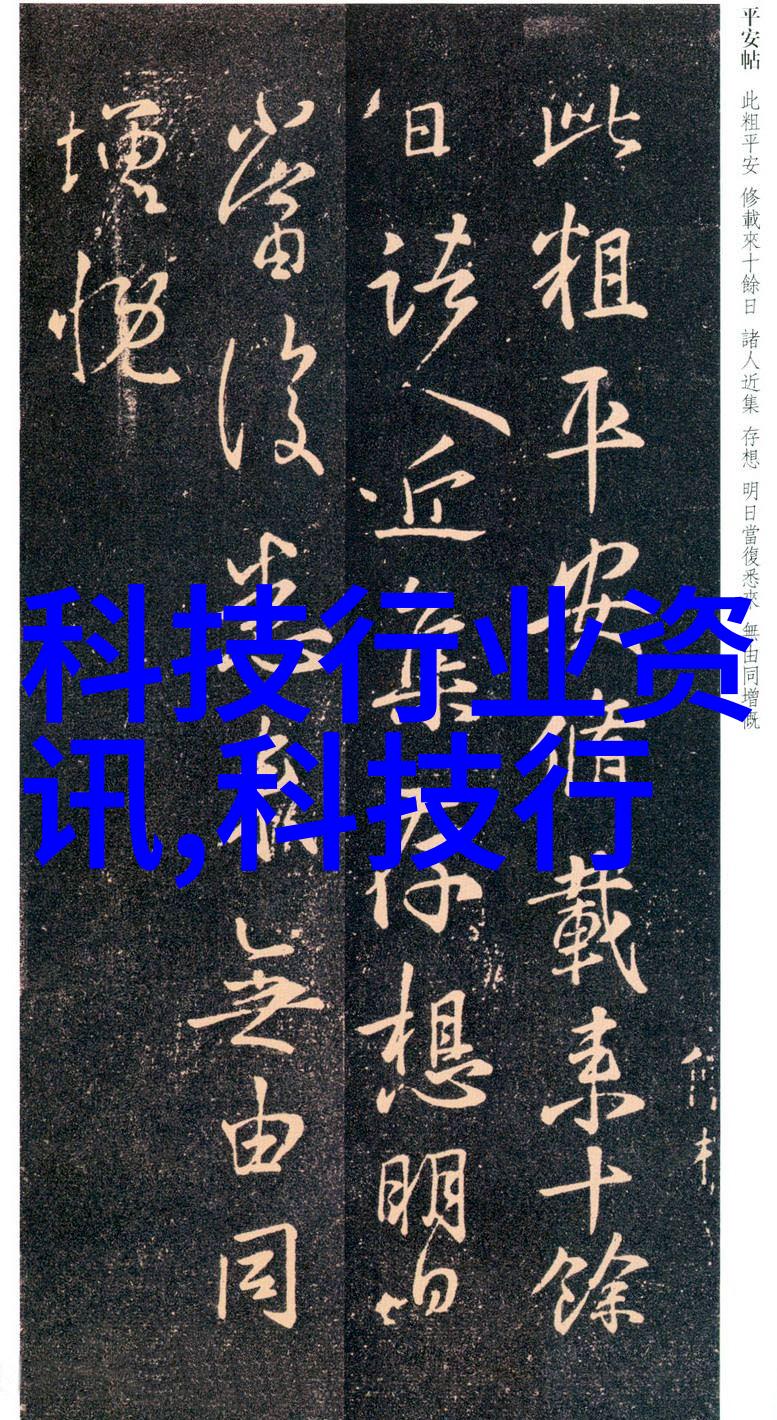 平安帖 此粗平安 修載來十餘日 諸人近集 存想 明日當復悉來 無由同增慨
此粗平安脩載来十餘
日諸人近集存想明日
當復悉来無由同
增慨
科技行业资
讯,科技行